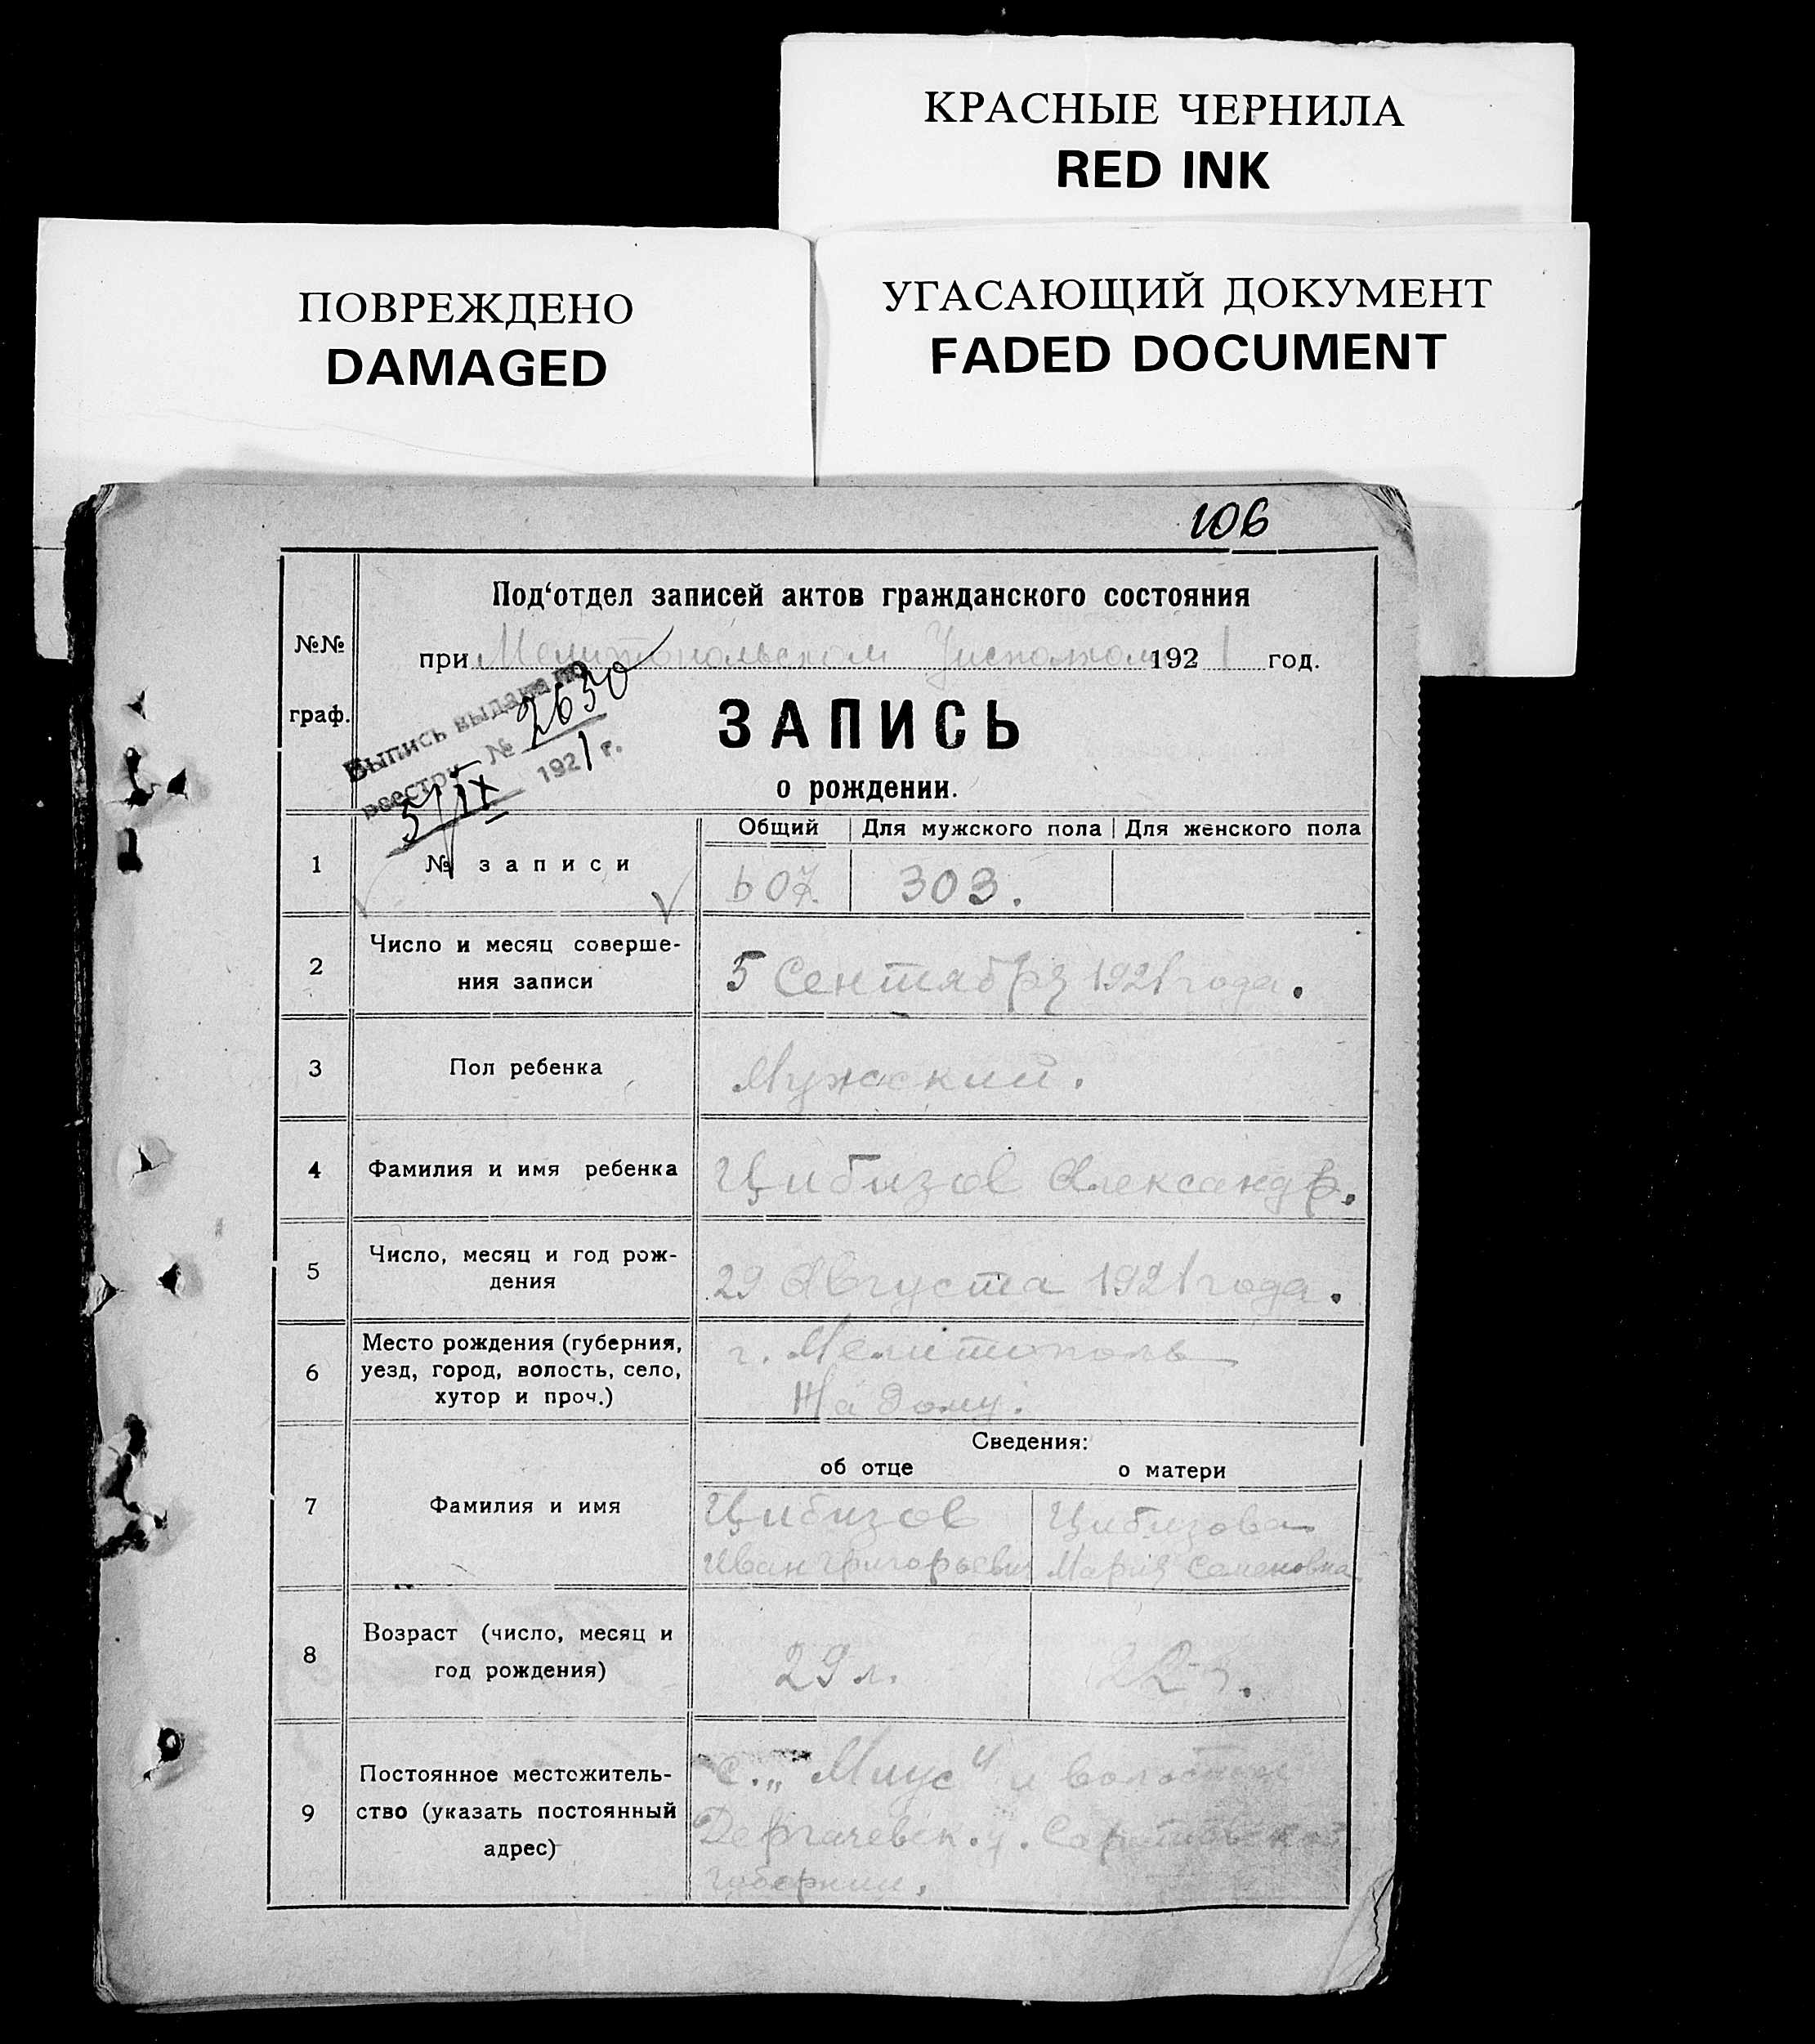 КРАСНЫЕ ЧЕРНИЛА
RED INK
ПОВРЕЖДЕНО
DAMAGED
УГАСАЮЩИЙ ДОКУМЕНТ
FADED DOCUMENT
106
№№ граф.
Под'отдел записей актов гражданского состояния
при Мелитопольском Уисполкоме 1921 год.
Выпись выдана по
реестру № 2630
5/IX 1921 г.
ЗАПИСЬ
о рождении.
Общий Для мужского пола Для женского пола
1 № записи 607. 303.
2 Число и месяц соверше-
ния записи
5 Сентября 1921 года.
3 Пол ребенка Мужский.
4 Фамилия и имя ребенка Цибизов Александр.
5 Число, месяц и год рож-
дения
29 Августа 1921 года.
6 Место рождения (губерния,
уезд, город, волость, село,
хутор и проч.)
г. Мелитополь
На дому.
Сведения:
об отце о матери
7 Фамилия и имя
Цибизов Цибизова
Иван Григорьевич Мария Семеновна
8 Возраст (число, месяц и
год рождения)
29 л.
9 Постоянное местожитель-
ство (указать постоянный
адрес)
с. „Миус" и волости
Дергачевск. у. Саратовской
губернии.